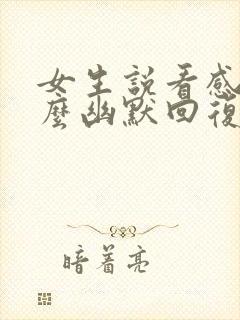 女生説看感
麼幽默回復
暗着亮